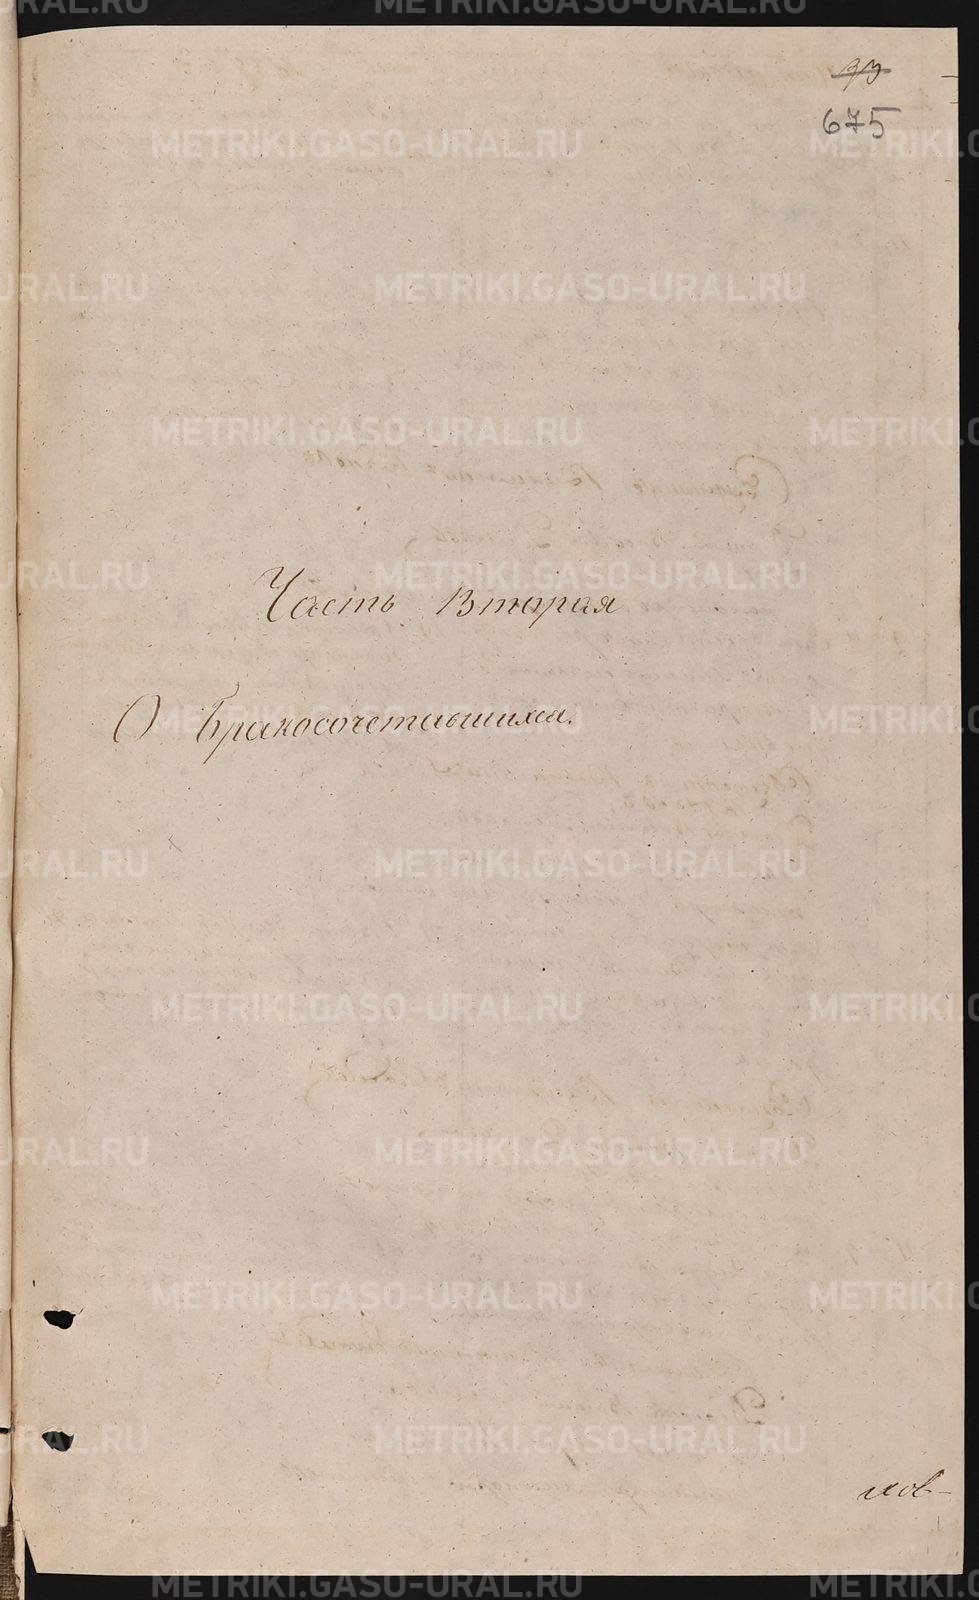 675
Часть Вторая
О бракосочетавшихся.
METRIKI.GASO-URAL.RU